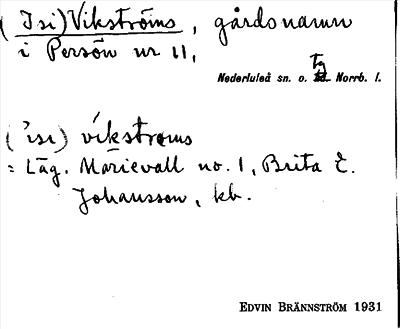 (Isi) Vikströms, gårdsnamn
i Persön nr 11,
Nederluleå sn. o. tg Norrb. l.
(ˈisi) víkstrøms
= Läg. Marievall no. 1, Brita E.
Johansson, kb.
EDVIN BRÄNNSTRÖM 1931